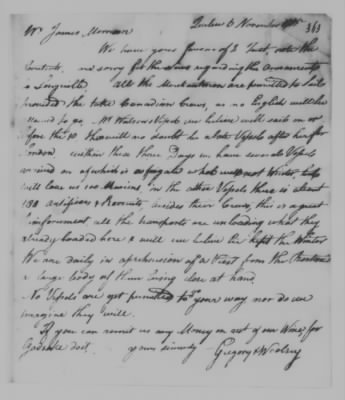 363
Mr James Morrison Quebec 6 November
We have your favour of 3 Inst note the
Contents, are sorry for the regarding the Armaments
is Longuille. All the Merchantmen are permitted to Sail
provided the take Canadian Crews, as no English will be
allowed to go, Mr Watsons Vessel we believe will sail on or
before the 10 there will no doubt be a late Vessels after her for
London within these three Days we have several Vessels
arrived on of which is a frigate what will not Winter, but
will leave us 100 Marines, in the other Vessels there is about
150 Artificers & Recruits besides their Crews, this is a great
reinforcement all the transports are unloading what they
already loaded here & will we believe be kept the Winter
We are daily in apprehension of a Visit from the
a large body of them being close at hand.
No Vessels are yet permitted to your way nor do we
imagine they will.
If you can remit us any Money on acct of our Wine, for
Godsake do it. yours sincerely Gregory & Woolsey